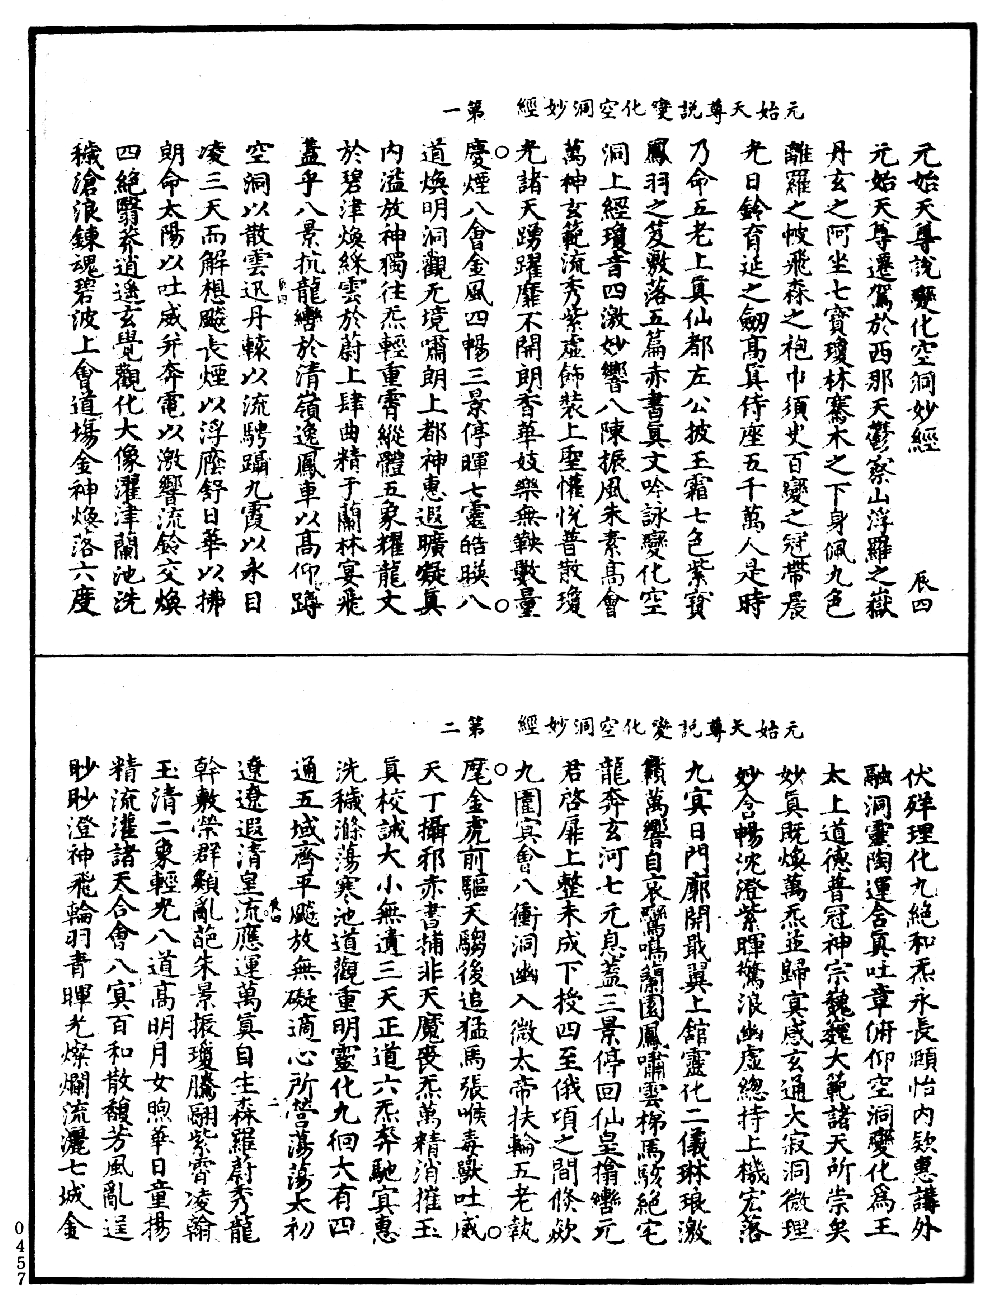 元始天尊說變化空洞妙經　第一
元始天尊說變化空洞妙經　辰四
元始天尊遷駕於西那天鬱察山浮羅之嶽
丹玄之阿坐七寶瓊林騫木之下身佩九色
離羅之帔飛森之袍巾須臾百變之冠帶晨
光日鈴育延之劒高眞侍座五千萬人是時
乃命五老上眞仙都左公披玉霜七色紫寶
鳳羽之笈敷落五篇赤書眞文吟詠變化空
洞上經瓊音四激妙響八陳振風朱素高會
萬神玄範流秀紫虛飾裝上聖懽悅普散瓊
光諸天踴躍靡不開朗香華妓樂無鞅數量
慶煙八會金風四暢三景停暉七靈皓暎八
道煥明洞觀无境嘯朗上都神惠遐曠凝眞
內溢放神獨往炁輕重霄縱體五象耀龍文
於碧津煥綵雲於蔚上肆曲精于蘭林宴飛
蓋乎八景抗龍轡於清嶺逸鳳車以高仰躋
辰四
空洞以散雲迅丹轅以流騁躡九霞以永目
凌三天而解想飈長煙以浮塵舒日華以拂
朗命太陽以吐威并奔電以激響流鈴交煥
四絕翳莽逍遙玄覺觀化大像濯津蘭池洗
穢滄浪鍊魂碧波上會道場金神煥落六度
元始天尊說變化空洞妙經　第二
伏殚理化九絕和炁永長頤怡內欵惠講外
融洞靈陶運合眞吐章俯仰空洞變化爲王
太上道德普冠神宗巍巍大範諸天所崇矣
妙眞既煥萬炁並歸冥感玄通大寂洞微理
妙含暢沈澄紫暉驚浪幽虛總持上機宏落
九冥日門廓開戢翼上館靈化二儀琳琅激
籟萬響自哀鸞鳴蘭園鳳嘯雲梯馬駭絕宅
龍奔玄河七元息蓋三景停回仙皇搚轡元
君啓扉上整未成下授四至俄頃之間倏欻
九圍冥會八衝洞幽入微太帝扶輪五老執
麾金虎前驅天騶後追猛馬張喉毒獸吐威
天丁攝邪赤書捕非天魔喪炁萬精消摧玉
眞校誡大小無遺三天正道六炁莽馳冥惠
洗穢滌蕩寒池道觀重明靈化九徊大有四
通五域齊平飈放無礙適心所營蕩蕩太初
辰四　二
遼遼遐清皇流應運萬眞自生森羅蔚秀龍
幹敷榮群纇亂葩朱景振瓊騰翮紫霄凌翰
玉清二象輕光八道高明月女煦華日童揚
精流灌諸天合會八冥百和散馥芳風亂逞
眇眇澄神飛輪羽青暉光燦爛流灑七城金
0457